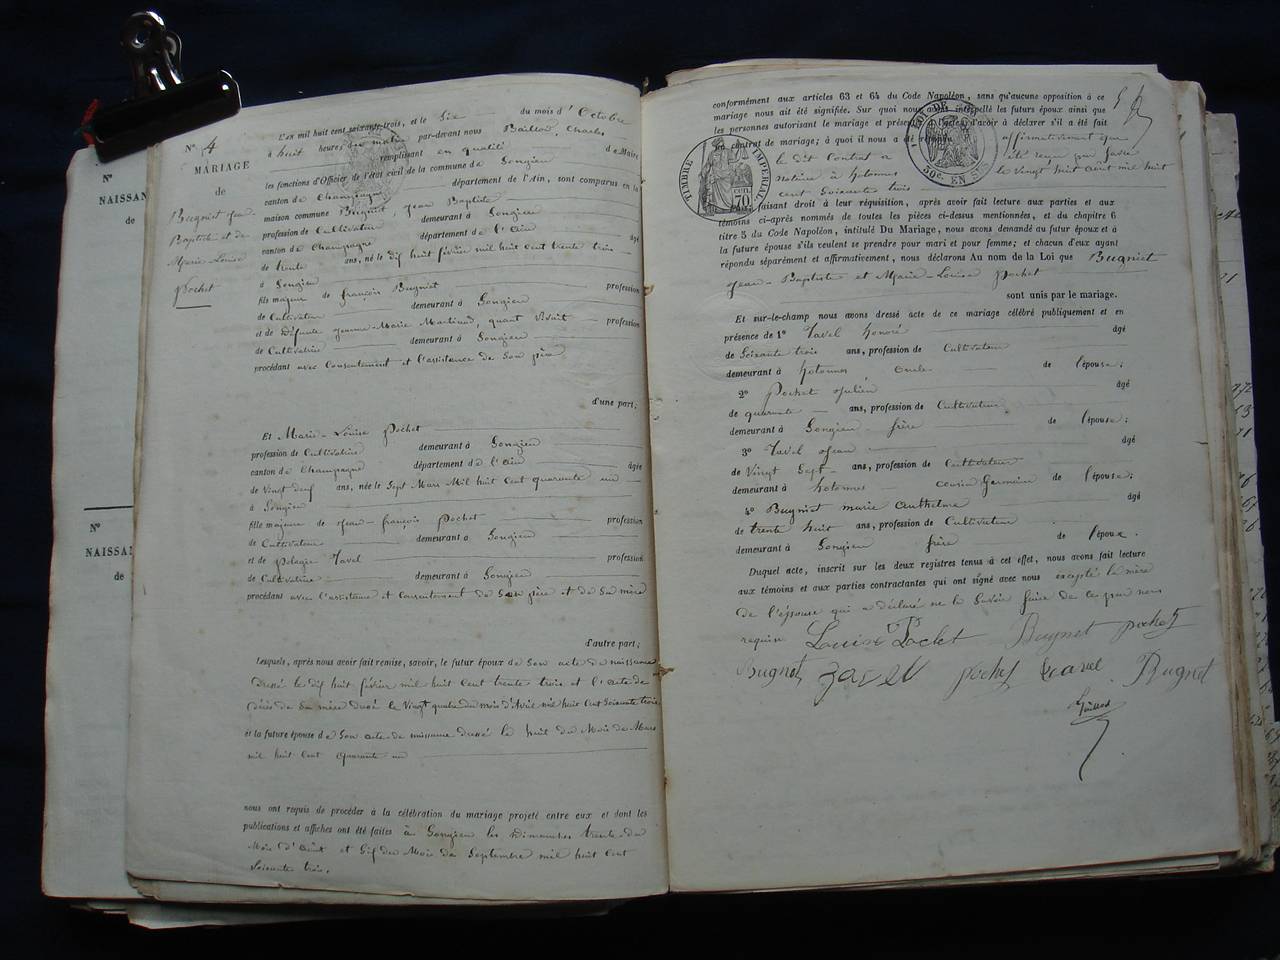 N°
NAISSAN
de
N°
NAISSAN
de
N° 4
MARIAGE
de
Bugniet Jean-
Baptiste et de
Marie-Louise
Pochet
L'an mil huit cent soixante trois, et le Six du mois d'Octobre
à huit heures du matin par-devant nous Baillod, Charles
remplissant en qualité de Maire
les fonctions d'Officier de l'état civil de la commune de Songieu
canton de Champagne département de l'Ain, sont comparus en la
maison commune Bugniet, Jean Baptiste
profession de Cultivateur demeurant à Songieu
canton de Champagne département de l'Ain âgé
de trente ans, né le dix huit février mil huit cent trente trois
à Songieu
fils majeur de françois Bugniet profession
de Cultivateur demeurant à Songieu
et de Défunte Jeanne-Marie Martinod, quant vivait profession
de Cultivatrice demeurant à Songieu
procédant avec Consentement et l'assistance de Son père
d'une part;
Et Marie-Louise Pochet
profession de Cultivatrice demeurant à Songieu
canton de Champagne département de l'Ain âgée
de Vingt deux ans, née le Sept Mars Mil huit Cent quarante un
à Songieu
fille majeure de Jean-françois Pochet profession
de Cultivateur demeurant à Songieu
et de Pélagie Tavel profession
de Cultivatrice demeurant à Songieu
procédant avec l'assistance et Consentement de Son père et de Sa mère
d'autre part;
Lesquels, après nous avoir fait remise, savoir, le futur époux de Son acte de naissance
Dressé le dix huit février mil huit Cent trente trois et l'acte de
décès de Sa mère dressé le Vingt quatre du mois d'Avril mil huit Cent Soixante trois
et la future épouse de Son acte de naissance dressé le huit du Mois de Mars
mil huit Cent quarante un
nous ont requis de procéder à la célébration du mariage projeté entre eux et dont les
publications et affiches ont été faites à Songieu les Dimanches trente du
Mois d'août et Six du Mois de Septembre mil huit Cent
Soixante trois.
conformément aux articles 63 et 64 du Code Napoléon, sans qu'aucune opposition à ce
mariage nous ait été signifiée. Sur quoi nous avons interpellé les futurs époux ainsi que
les personnes autorisant le mariage et présentes à l'acte, d'avoir à déclarer s'il a été fait
un contrat de mariage; à quoi il nous a été répondu affirmativement que
le dit Contrat a été reçu par
notaire à hotonnes le Vingt huit août mil huit
cent Soixante trois
TIMBRE IMPÉRIAL
70 cen.
50c. EN SUS
faisant droit à leur réquisition, après avoir fait lecture aux parties et aux
témoins ci-après nommés de toutes les pièces ci-dessus mentionnées, et du chapitre 6
titre 5 du Code Napoléon, intitulé Du Mariage, nous avons demandé au futur époux et à
la future épouse s'ils veulent se prendre pour mari et pour femme; et chacun d'eux ayant
répondu séparément et affirmativement, nous déclarons Au nom de la Loi que Bugniet
Jean-Baptiste et Marie-Louise Pochet
sont unis par le mariage.
Et sur-le-champ nous avons dressé acte de ce mariage célébré publiquement et en
présence de 1° Tavel honoré âgé
de Soixante trois ans, profession de Cultivateur
demeurant à hotonnes oncle de l'épouse;
2° Pochet Julien âgé
de quarante ans, profession de Cultivateur
demeurant à Songieu frère de l'épouse;
3° Tavel Jean âgé
de Vingt Sept ans, profession de Cultivateur
demeurant à hotonnes cousin Germain de l'épouse;
4° Bugniet marie anthelme âgé
de trente huit ans, profession de Cultivateur
demeurant à Songieu frère de l'époux.
Duquel acte, inscrit sur les deux registres tenus à cet effet, nous avons fait lecture
aux témoins et aux parties contractantes qui ont signé avec nous excepté la mère
de l'épouse qui a déclaré ne le Savoir faire de ce par nous
requise Louise Pochet Bugnet pochet
Bugnet Tavel pochet tavel Bugnet